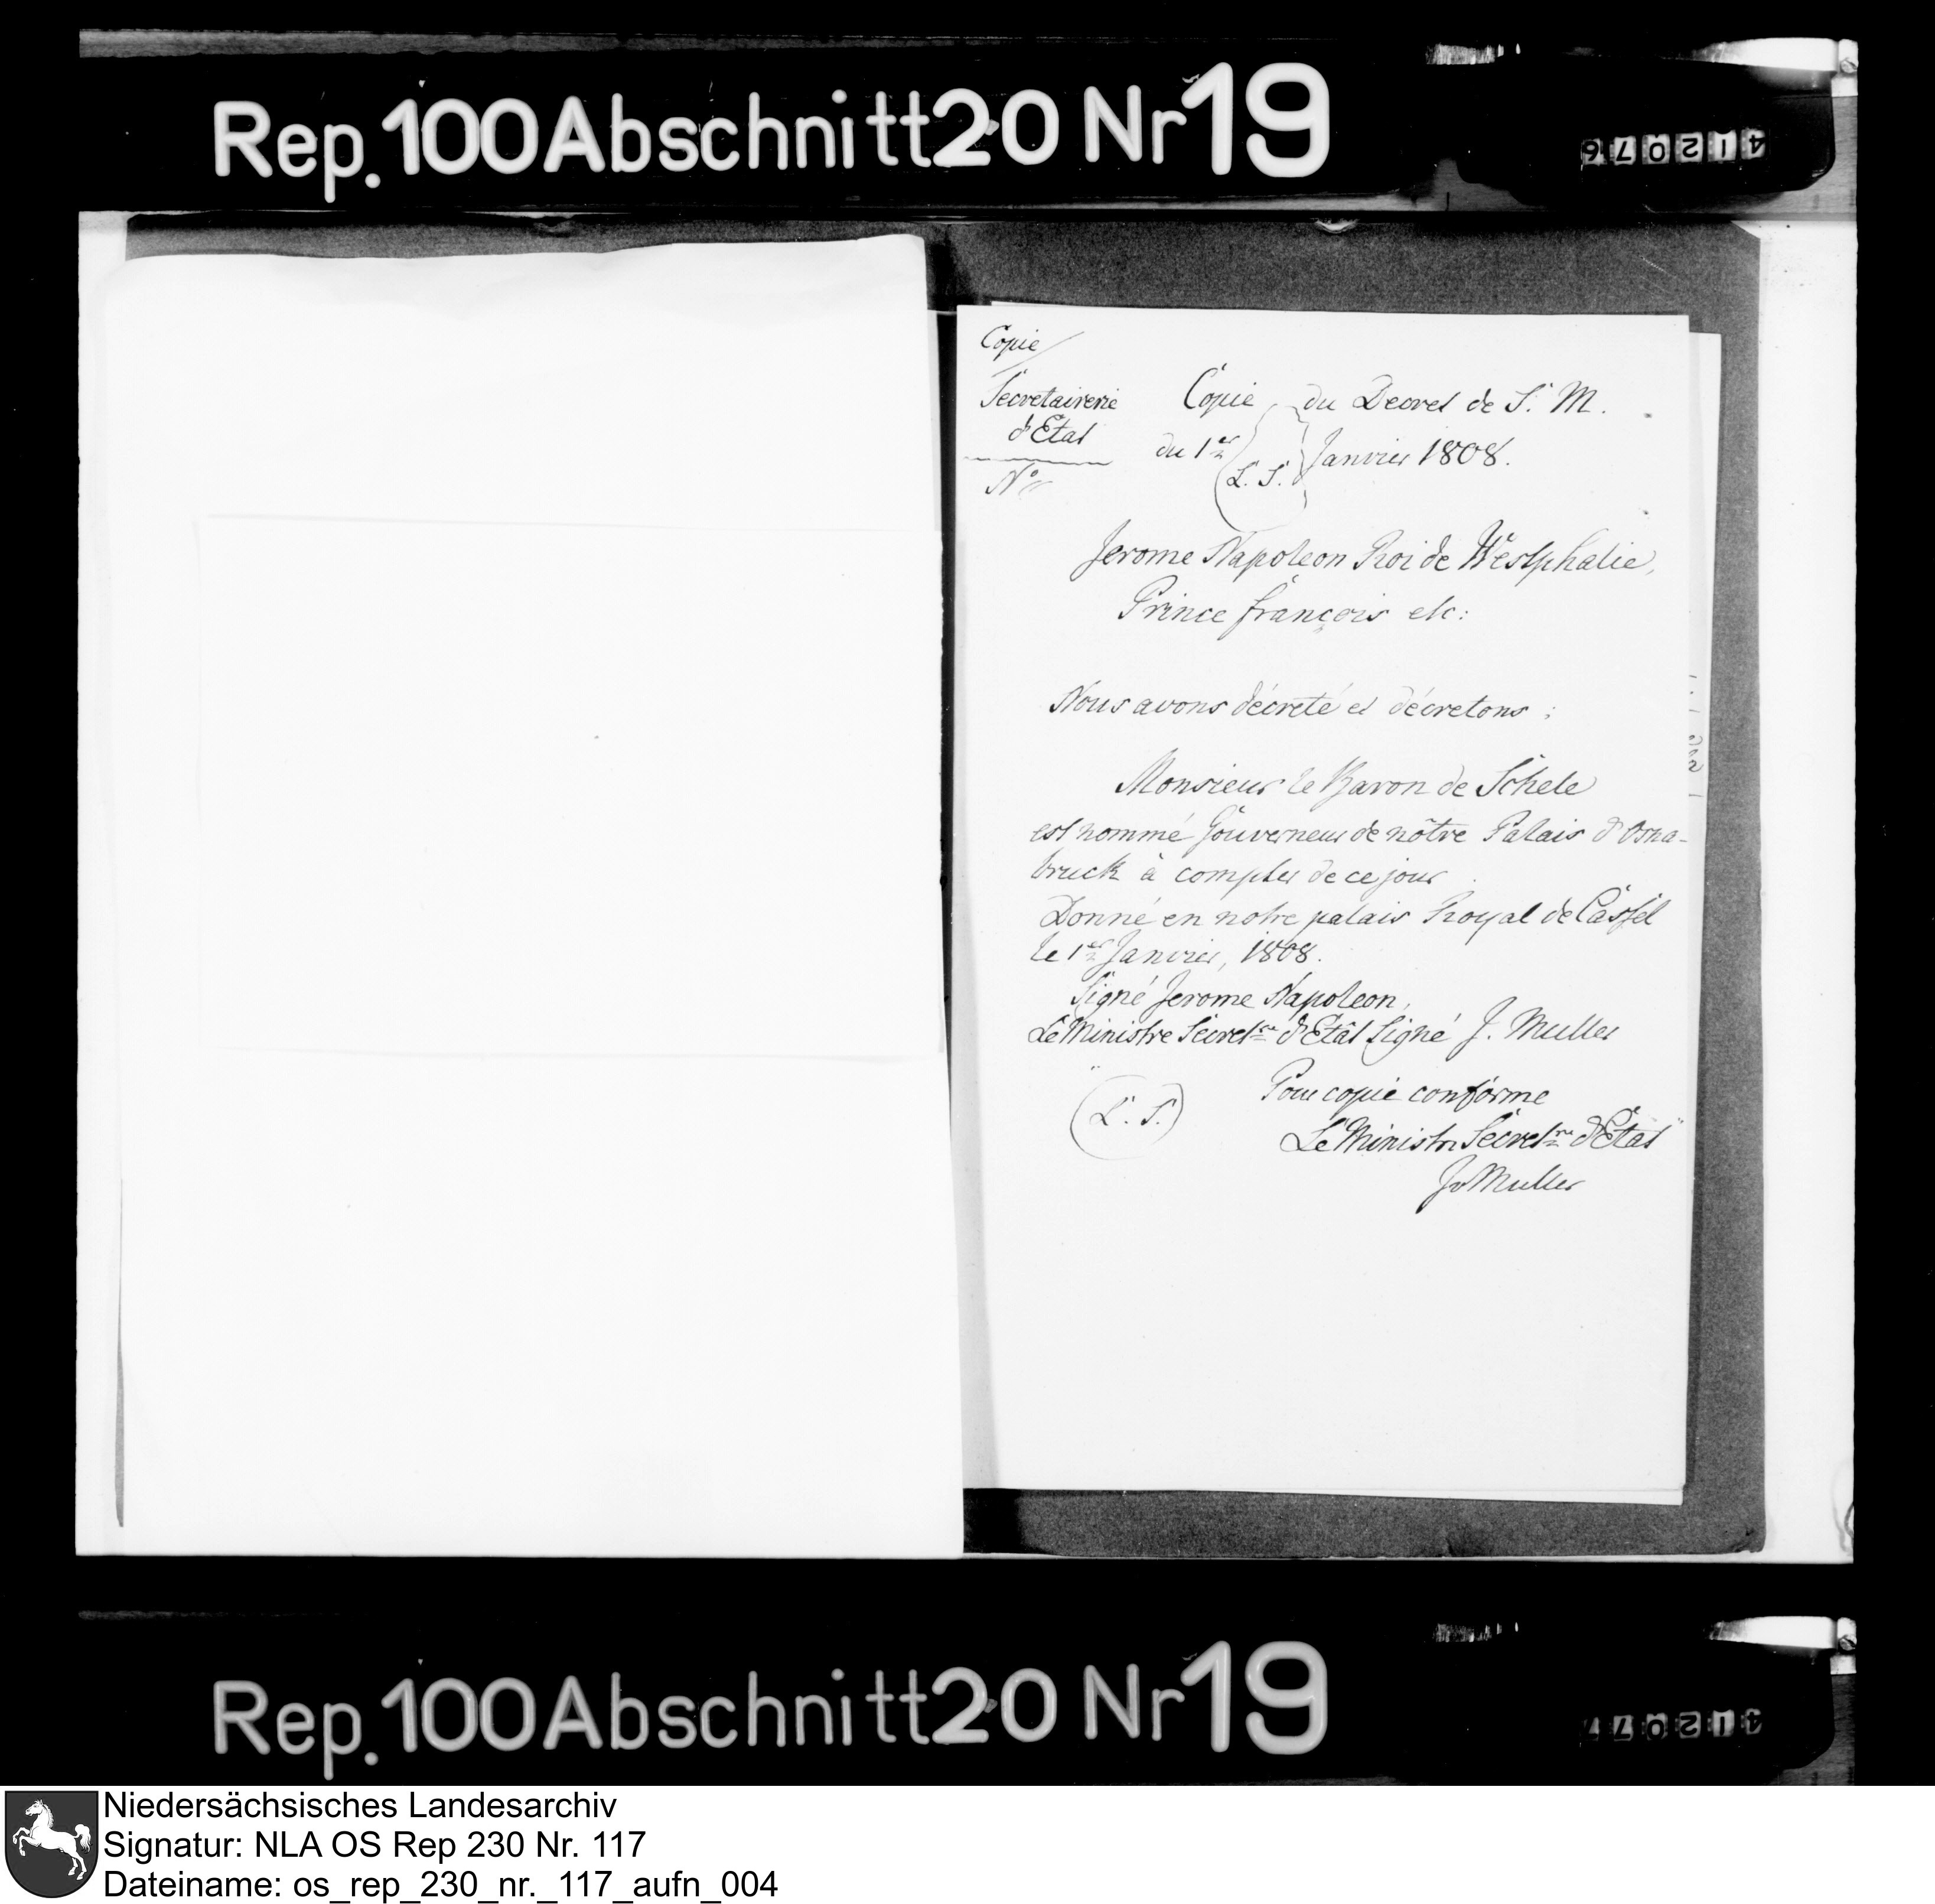 Rep. 100 Abschnitt 20 Nr 19
412076
Copie
Secretairerie
d'Etat
N°
Copie du Decret de S. M.
du 1er Janvier 1808.
L. S.
Jerome Napoleon Roi de Westphalie,
Prince françois etc:
Nous avons décreté et décretons :
Monsieur le Baron de Schele
est nommé Gouverneur de nôtre Palais d'Osna-
bruck à compter de ce jour
Donné en notre palais Royal de Cassel
le 1er Janvier, 1808.
Signé Jerome Napoleon,
Le Ministre Secretre d'Etât signé J. Muller
(L. S.)
Pour copie conforme
Le Ministre Secretre d'Etat
Jv Muller
Rep. 100 Abschnitt 20 Nr 19
412077
Niedersächsisches Landesarchiv
Signatur: NLA OS Rep 230 Nr. 117
Dateiname: os_rep_230_nr._117_aufn_004